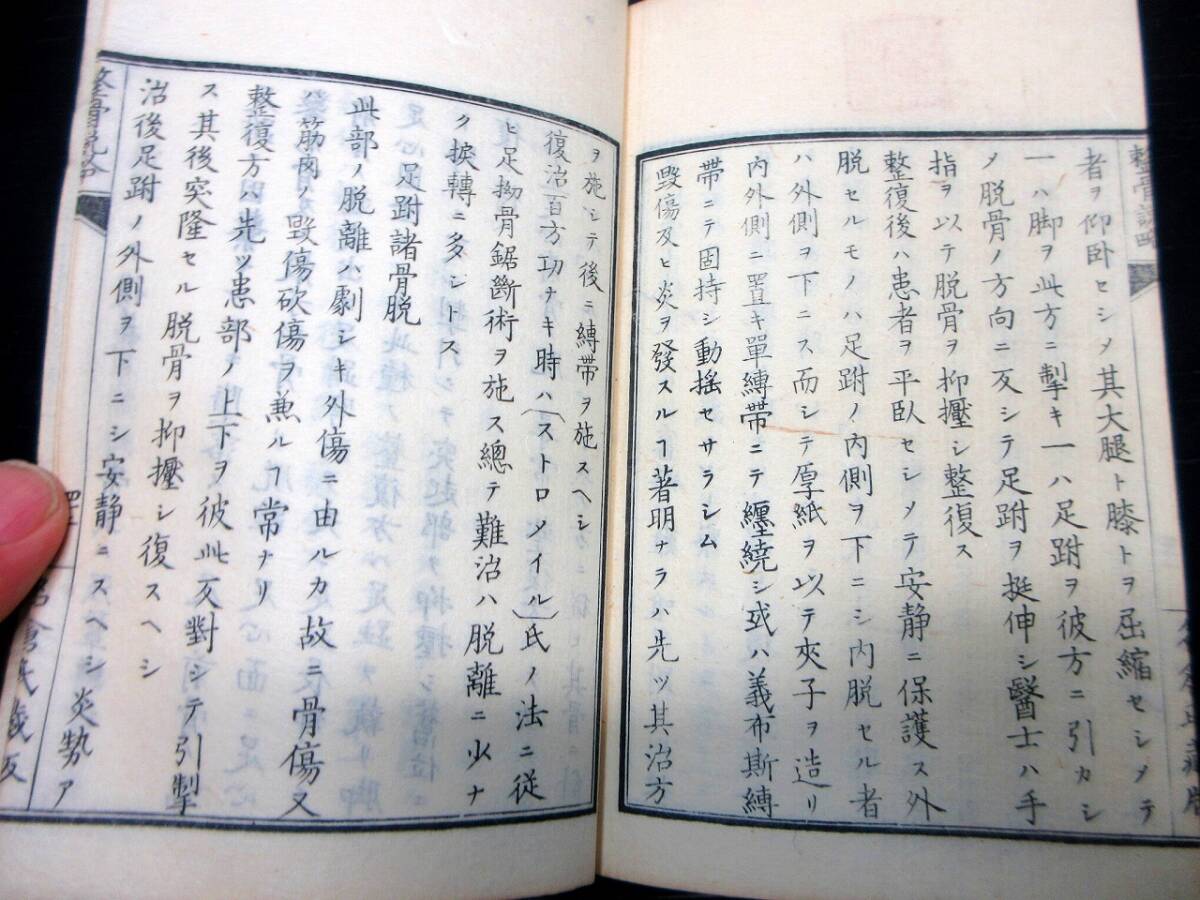 者ヲ仰臥セシメ其大腿ト膝トヲ屈縮セシメテ
一ハ脚ヲ此方ニ掣キ一ハ足跗ヲ彼方ニ引カシ
メ脱骨ノ方向ニ反シテ足跗ヲ挺伸シ醫士ハ手
指ヲ以テ脱骨ヲ抑壓シ整復ス
整復後ハ患者ヲ平臥セシメテ安静ニ保護ス外
脱セルモノハ足跗ノ内側ヲ下ニシ内脱セル者
ハ外側ヲ下ニス而シテ厚紙ヲ以テ夾子ヲ造リ
内外側ニ置キ單縛帯ニテ纒繞シ或ハ義布斯縛
帯ニテ固持シ動揺セサラシム
毀傷及ヒ炎ヲ發スルヿ著明ナラハ先ツ其治方
ヲ施シテ後ニ縛帯ヲ施スヘシ
復治百方功ナキ時ハ(ストロメイル)氏ノ法ニ従
ヒ足拗骨鋸斷術ヲ施ス總テ難治ハ脱離ニ少ナ
ク捩轉ニ多シトス
足跗諸骨脱
此部ノ脱離ハ劇シキ外傷ニ由ルカ故ニ骨傷又
ハ筋肉ノ毀傷砍傷ヲ兼ルヿ常ナリ
整復方ハ先ツ患部ノ上下ヲ彼此反對シテ引掣
ス其後突隆セル脱骨ヲ抑壓シ復スヘシ
治後足跗ノ外側ヲ下ニシ安静ニスヘシ炎勢ア
整骨説略